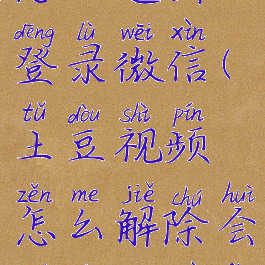 dēng lù wēi xìn
登录微信(
tǔ dòu shì pín
土豆视频
zěn me jiě chú huì
怎么解除会